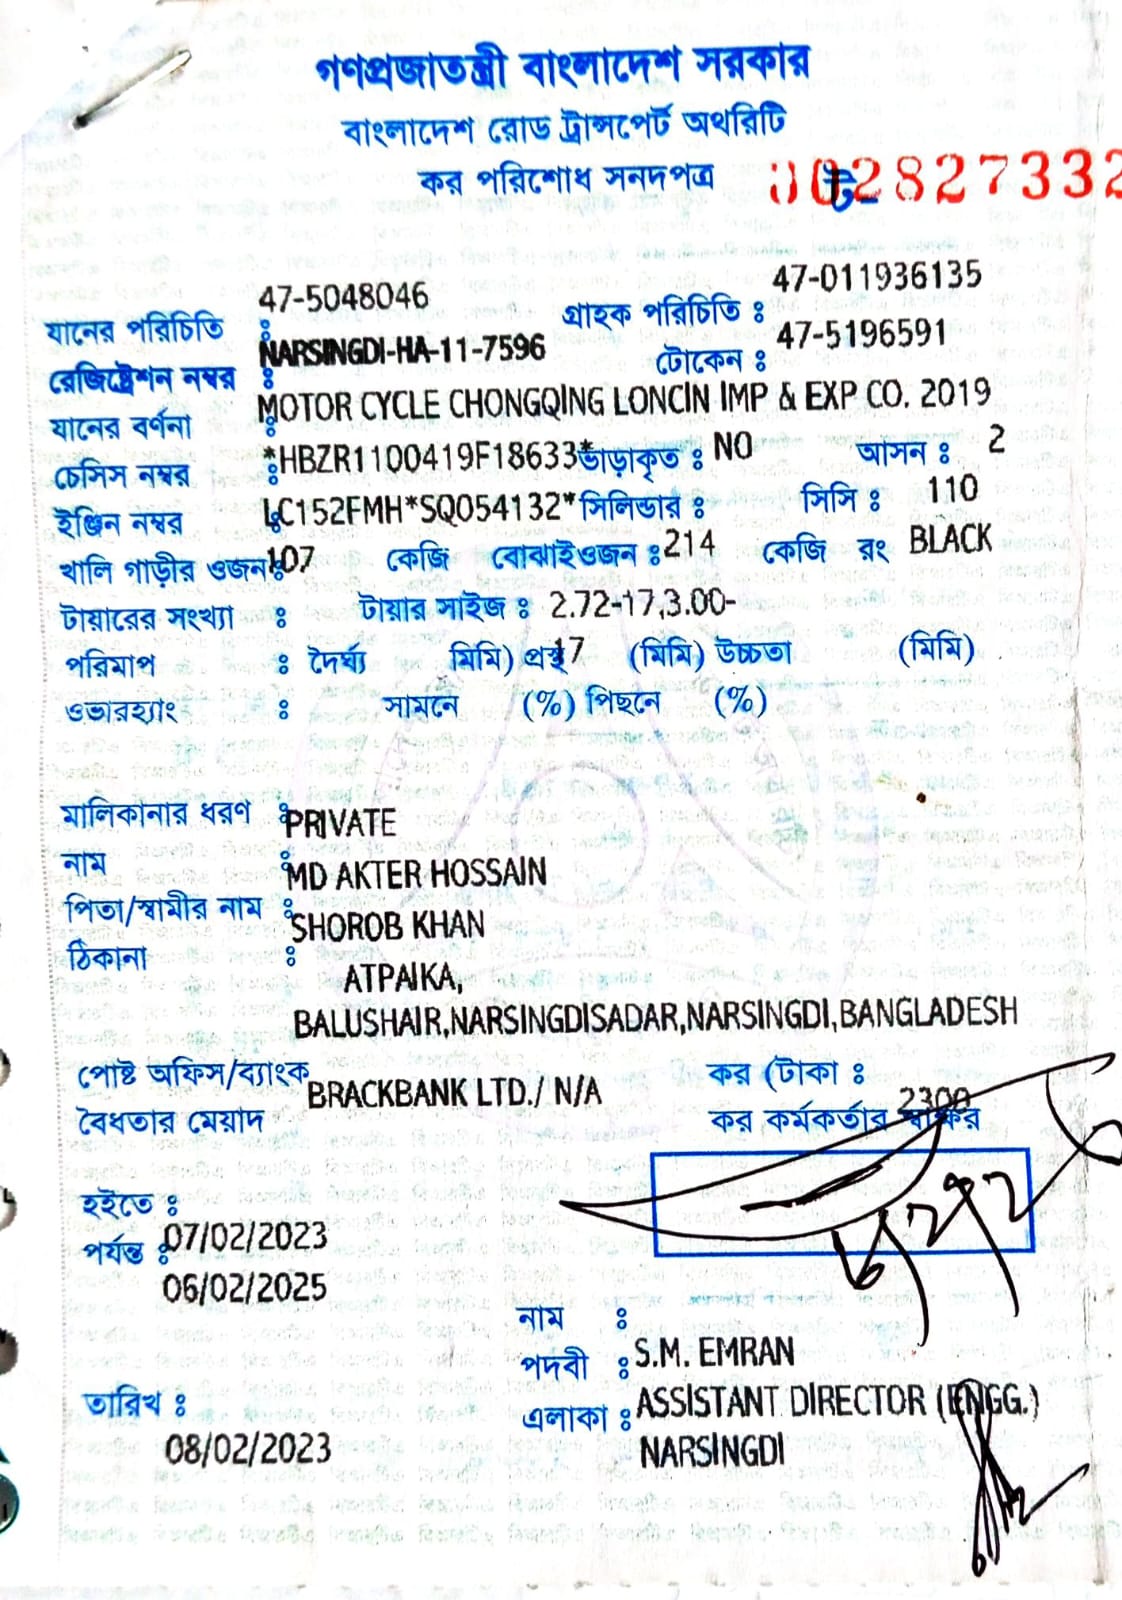 গণপ্রজাতন্ত্রী বাংলাদেশ সরকার
বাংলাদেশ রোড ট্রান্সপোর্ট অথরিটি
কর পরিশোধ সনদপত্র ট- 002827332
যানের পরিচিতি : 47-5048046 গ্রাহক পরিচিতি : 47-011936135
রেজিষ্ট্রেশন নম্বর : NARSINGDI-HA-11-7596 টোকেন : 47-5196591
যানের বর্ণনা : MOTOR CYCLE CHONGQING LONCIN IMP & EXP CO. 2019
চেসিস নম্বর : *HBZR1100419F18633* ভাড়াকৃত : NO আসন : 2
ইঞ্জিন নম্বর : LC152FMH*SQ054132* সিলিন্ডার : সিসি : 110
খালি গাড়ীর ওজন : 107 কেজি বোঝাইওজন : 214 কেজি রং BLACK
টায়ারের সংখ্যা : টায়ার সাইজ : 2.72-17,3.00-
পরিমাপ : দৈর্ঘ্য মিমি) প্রস্থ 17 (মিমি) উচ্চতা (মিমি)
ওভারহ্যাং : সামনে (%) পিছনে (%)
মালিকানার ধরণ : PRIVATE
নাম : MD AKTER HOSSAIN
পিতা/স্বামীর নাম : SHOROB KHAN
ঠিকানা : ATPAIKA,
BALUSHAIR,NARSINGDISADAR,NARSINGDI,BANGLADESH
পোষ্ট অফিস/ব্যাংক BRACKBANK LTD./ N/A কর (টাকা : 2300
বৈধতার মেয়াদ কর কর্মকর্তার স্বাক্ষর
হইতে : 07/02/2023
পর্যন্ত : 06/02/2025
নাম : S.M. EMRAN
পদবী : ASSISTANT DIRECTOR (ENGG.)
তারিখ : 08/02/2023 এলাকা : NARSINGDI